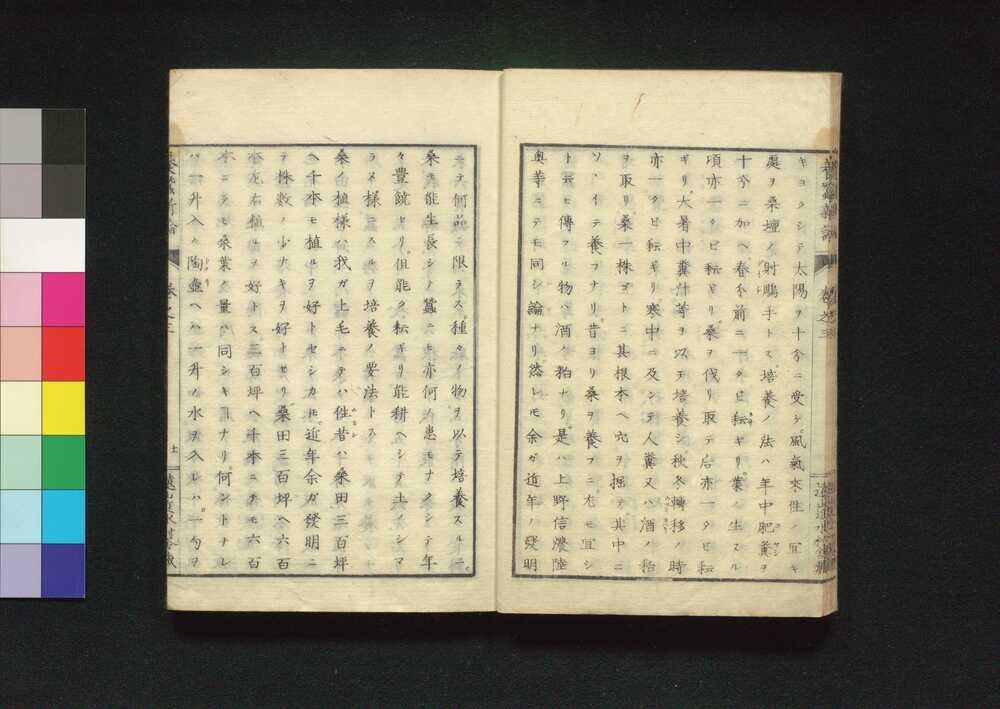 キヨクシテ太陽ヲ十分ニ愛シ風氣來住ノ宜キ
處ヲ桑壇ノ射鵰手トス培養ノ法ハ年中肥糞ヲ
十分ニ加ヘ春分前ニ一タビ耘ギリ葉ノ生スル
頃亦一タビ耘ギリ桑ヲ伐リ取テ后亦一タビ耘
ギリ大暑中糞汁等ヲ以テ培養シ秋冬轉移ノ時
亦一タビ耘ギリ寒中ニ及ンテ人糞又ハ酒ノ粕
ヲ取リ桑一株ゴトニ其根本ヘ穴ヲ掘テ其中ニ
ソヽイテ養フナリ昔ヨリ桑ヲ養フニ尤モ宜シ
ト云ヒ傳フル物ハ酒ノ粕ナリ是ハ上野信濃陸
奥等ニテモ同シ論ナリ然レモ余ガ近年ノ發明
ニテ何品ニ限ラス種々ノ物ヲ以テ培養スルニ
桑モ能生長シノ蠶ニモ亦何ノ患モナクシテ年
々豊饒セリ但能ク耘ギリ能耕ヘシテ土ノシマ
ラヌ様ニスルヲ培養ノ要法トス
桑ノ植様ハ我ガ上毛ニテハ往昔ハ桑田三百坪
ヘ千本モ植ルヲ好トセシカ𪜈近年余ガ發明ニ
テ株数ノ少ナキヲ好トセリ桑田三百坪ヘ六百
本左右植ルヲ好トス三百坪ヘ千本ニテモ六百
本ニテモ桑葉ノ量ハ同シキヿナリ何ントナレ
ハ一升入ル陶壷ヘハ一升ノ水ヲ入レハ一勺ヲ
養蠶新論
巻之三
十